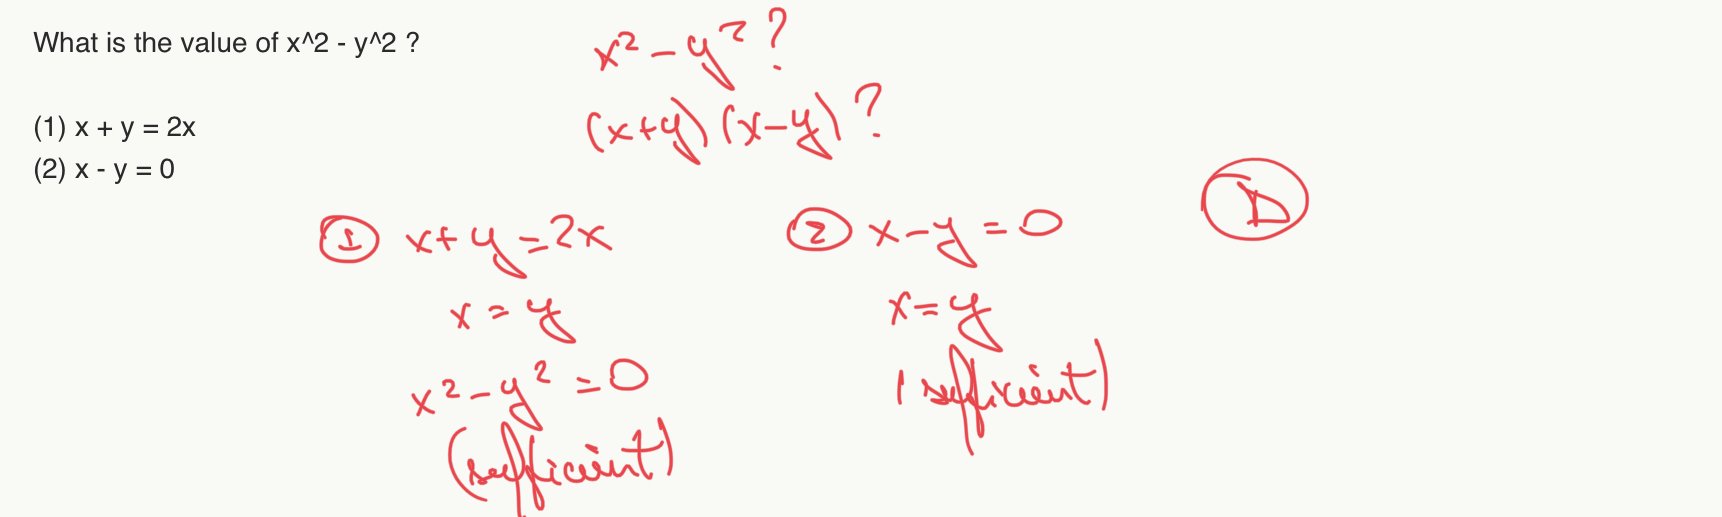 What is the value of x^2 - y^2 ?
(1) x + y = 2x
(2) x - y = 0
x² - y² ?
(x+y) (x-y) ?
① x + y = 2x
x = y
x² - y² = 0
(sufficient)
② x - y = 0
x = y
(sufficient)
D